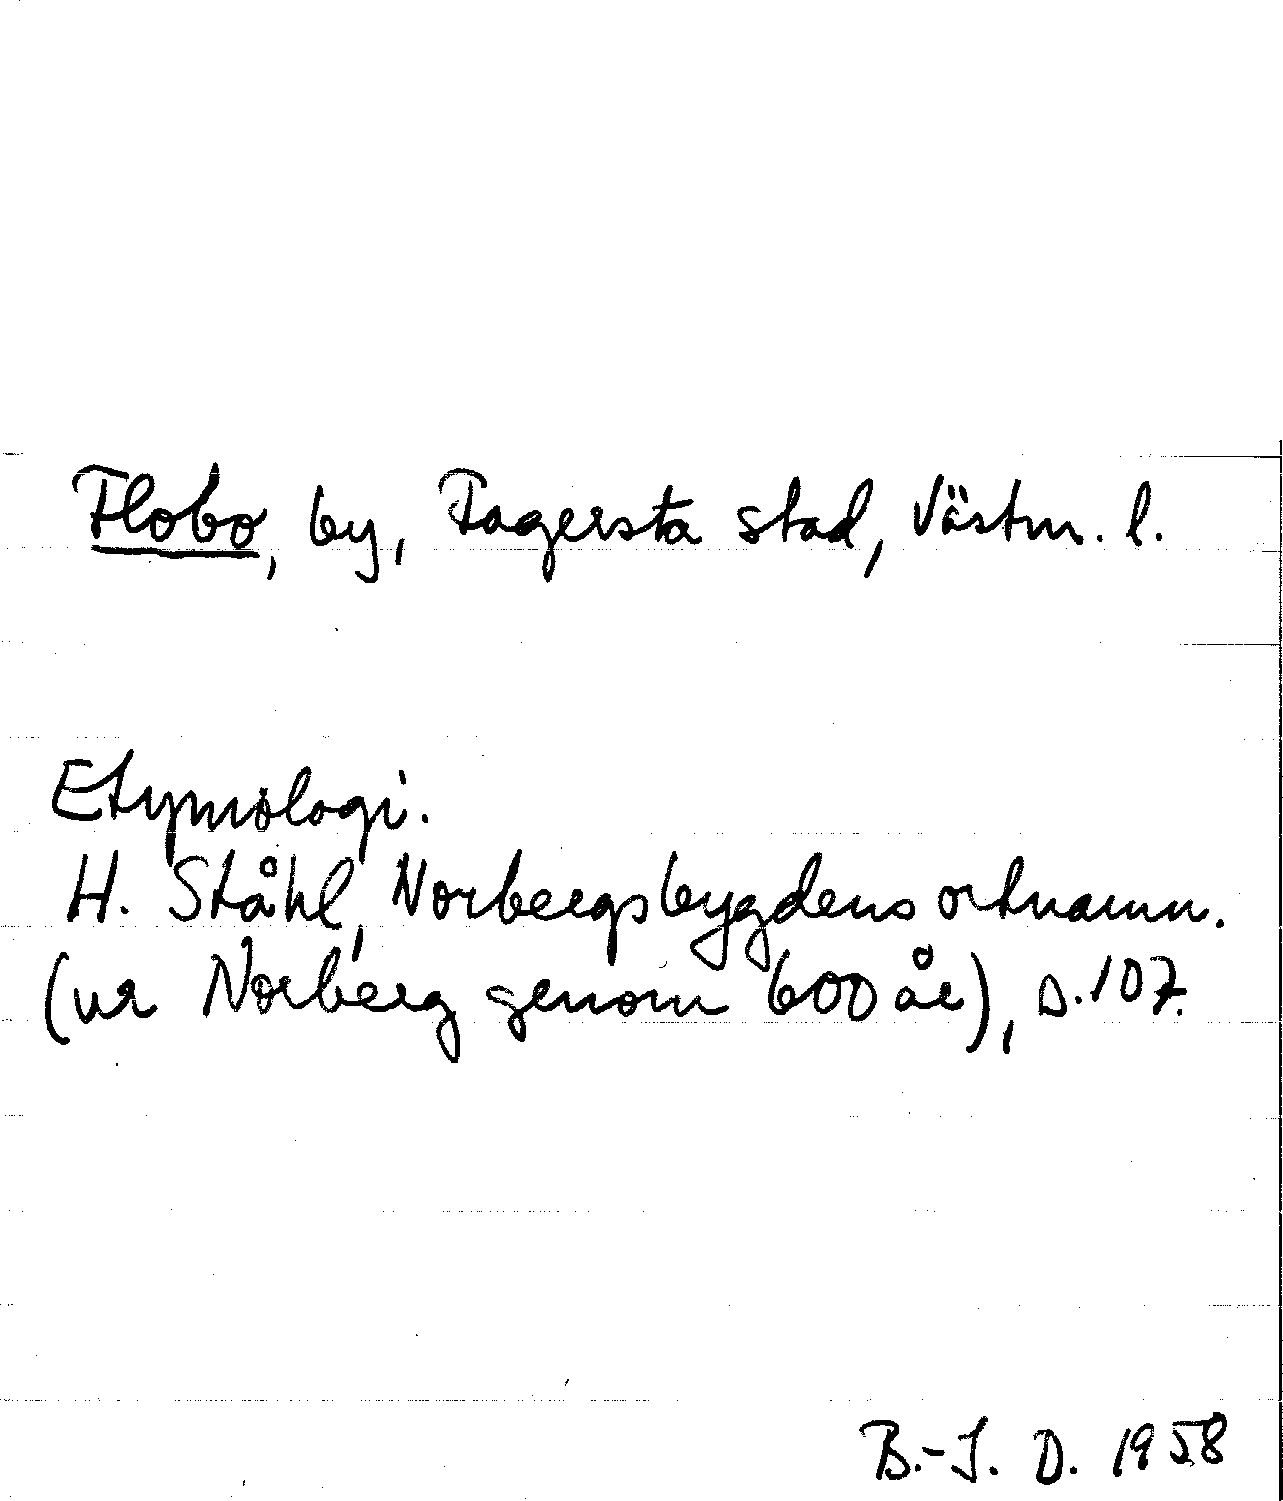 Flobo, by, Fagersta stad, Västm. l.
Etymologi.
H. Ståhl, Norbergsbygdens ortnamn.
(ur Norberg genom 600 år), s. 107.
B.-J. D. 1958